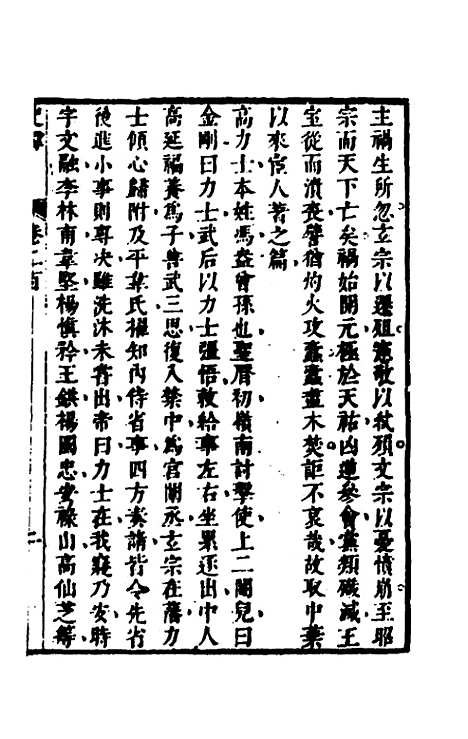 主禍生所忽玄宗以遷殂憲敬以弒殞文宗以憂憤崩至昭
宗而天下亡矣禍始開元極於天祐凶愎參會黨類殲滅王
室從而潰喪譬猶灼火攻蠹蠹盡木焚詎不哀哉故取中葉
以來宦人著之篇
高力士本姓馮盎曾孫也聖曆初嶺南討擊使上二閹兒曰
金剛曰力士武后以力士彊悟敕給事左右坐累逐出中人
高延福養爲子善武三思復入禁中爲宮闈丞玄宗在藩力
士傾心歸附及平韋氏權知內侍省事四方奏請皆令先省
後進小事則專决雖洗沐未嘗出帝曰力士在我寢乃安時
宇文融李林甫韋堅楊慎矜王鉷楊國忠安祿山高仙芝等
卷二百